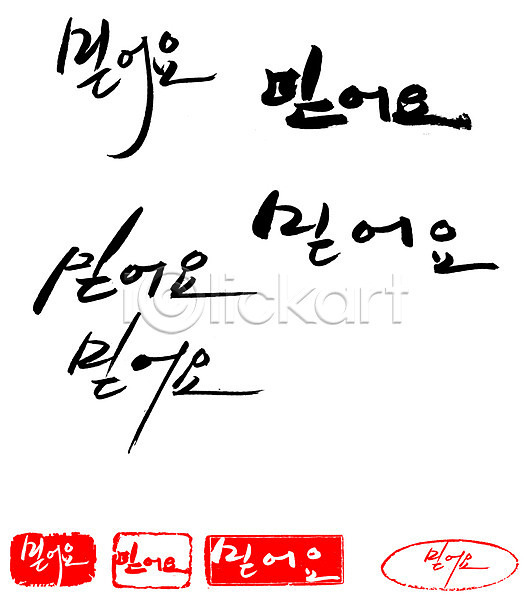 믿어요
믿어요
믿어요
믿어요
iclickart
믿어요
믿어요
믿어요
믿어요
믿어요